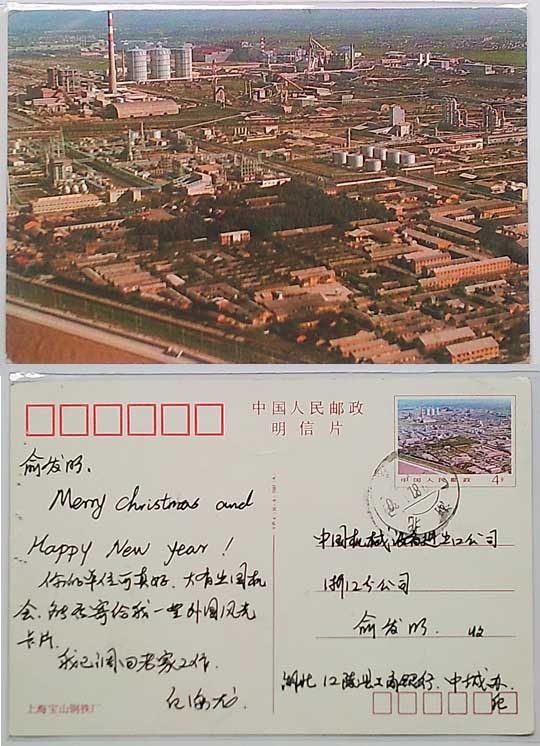 中国人民邮政
明信片
中国人民邮政 4分
俞发明.
Merry Christmas and
Happy New year!
你们单位可真好.大有出国机
会.能否寄给我一些外国风光
卡片.
我已调回老家工作.
上海宝山钢铁厂
中国机械设备进出口公司
浙江分公司
俞发明. 收
湖北江陵县工商银行.中城办.
纪